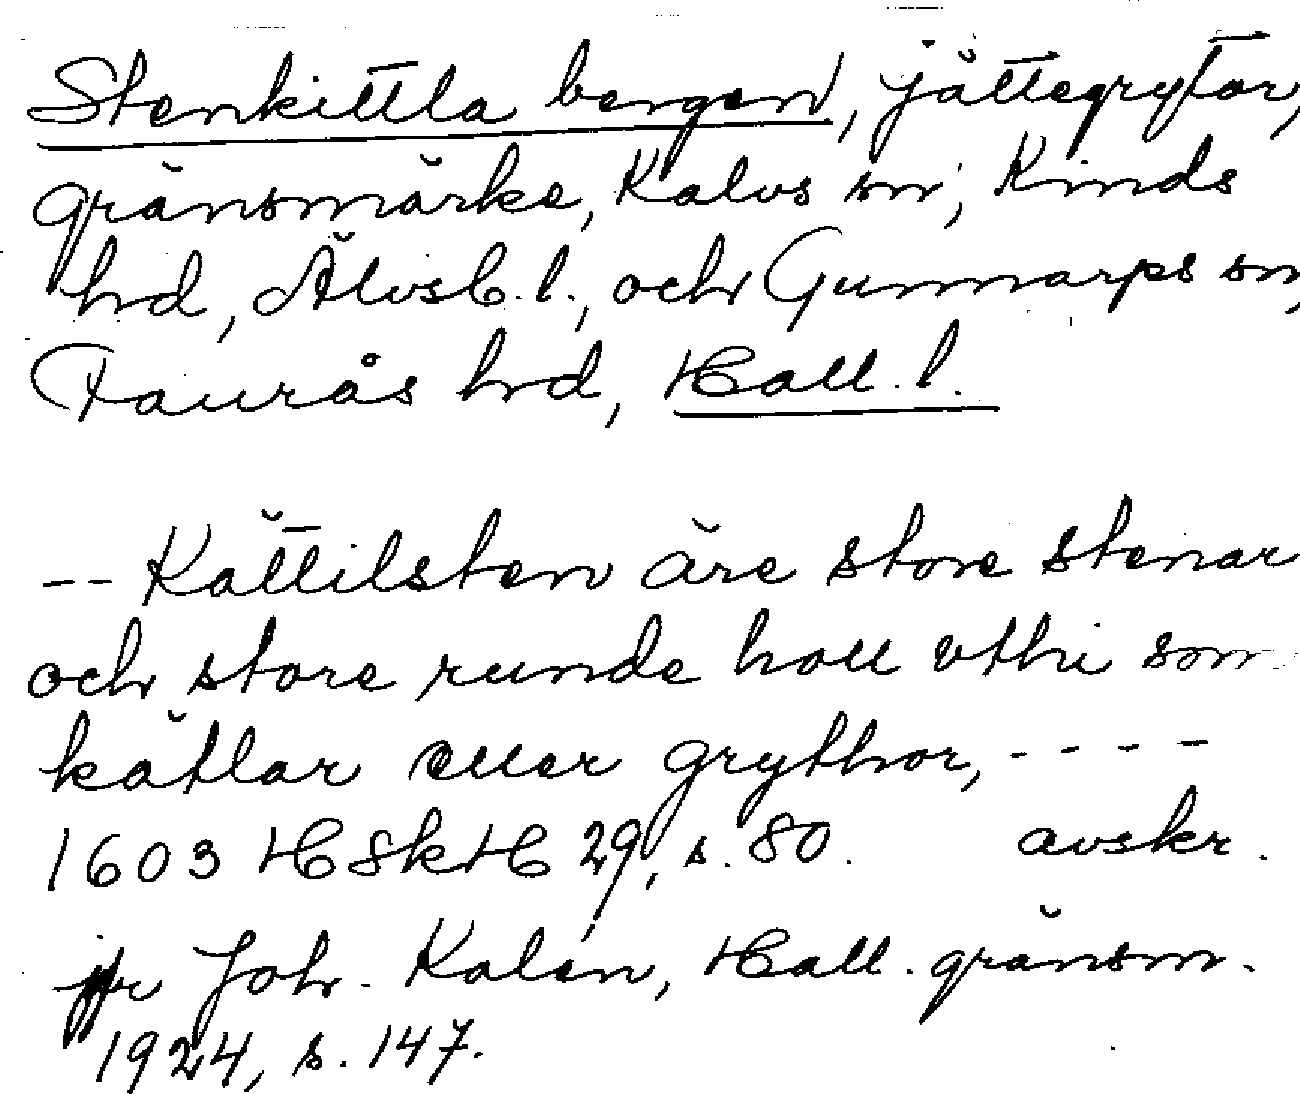 Stenkittla bergen, jättegrytor,
gränsmärke, Kalvs sn, Kinds
hd, Älvsb. l., och Gunnarps sn,
Faurås hd, Hall. l.
-- Kättilsten äre store stenar
och store runde holl vthi som
kätlar eller grythor, - - - -
1603 HSkH 29, s. 80. avskr.
jfr Joh. Kalén, Hall. gränsm.
1924, s. 147.